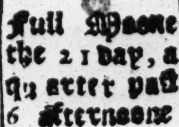 Full Moone
the 21 day, a
quarter past
6 afternoone